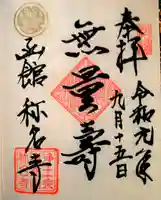 奉拝
令和元年
九月十五日
無量壽
函館
称名寺